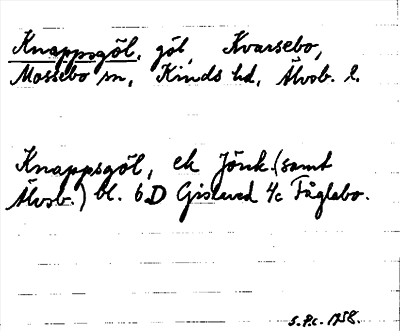 Knappsgöl, göl, Kvarsebo,
Mossebo sn, Kinds hd, Älvsb. l.
Knappsgöl, ek Jönk. (samt
Älvsb.) bl. 6D Gislaved 4c Fåglebo.
S.P.c. 1958.